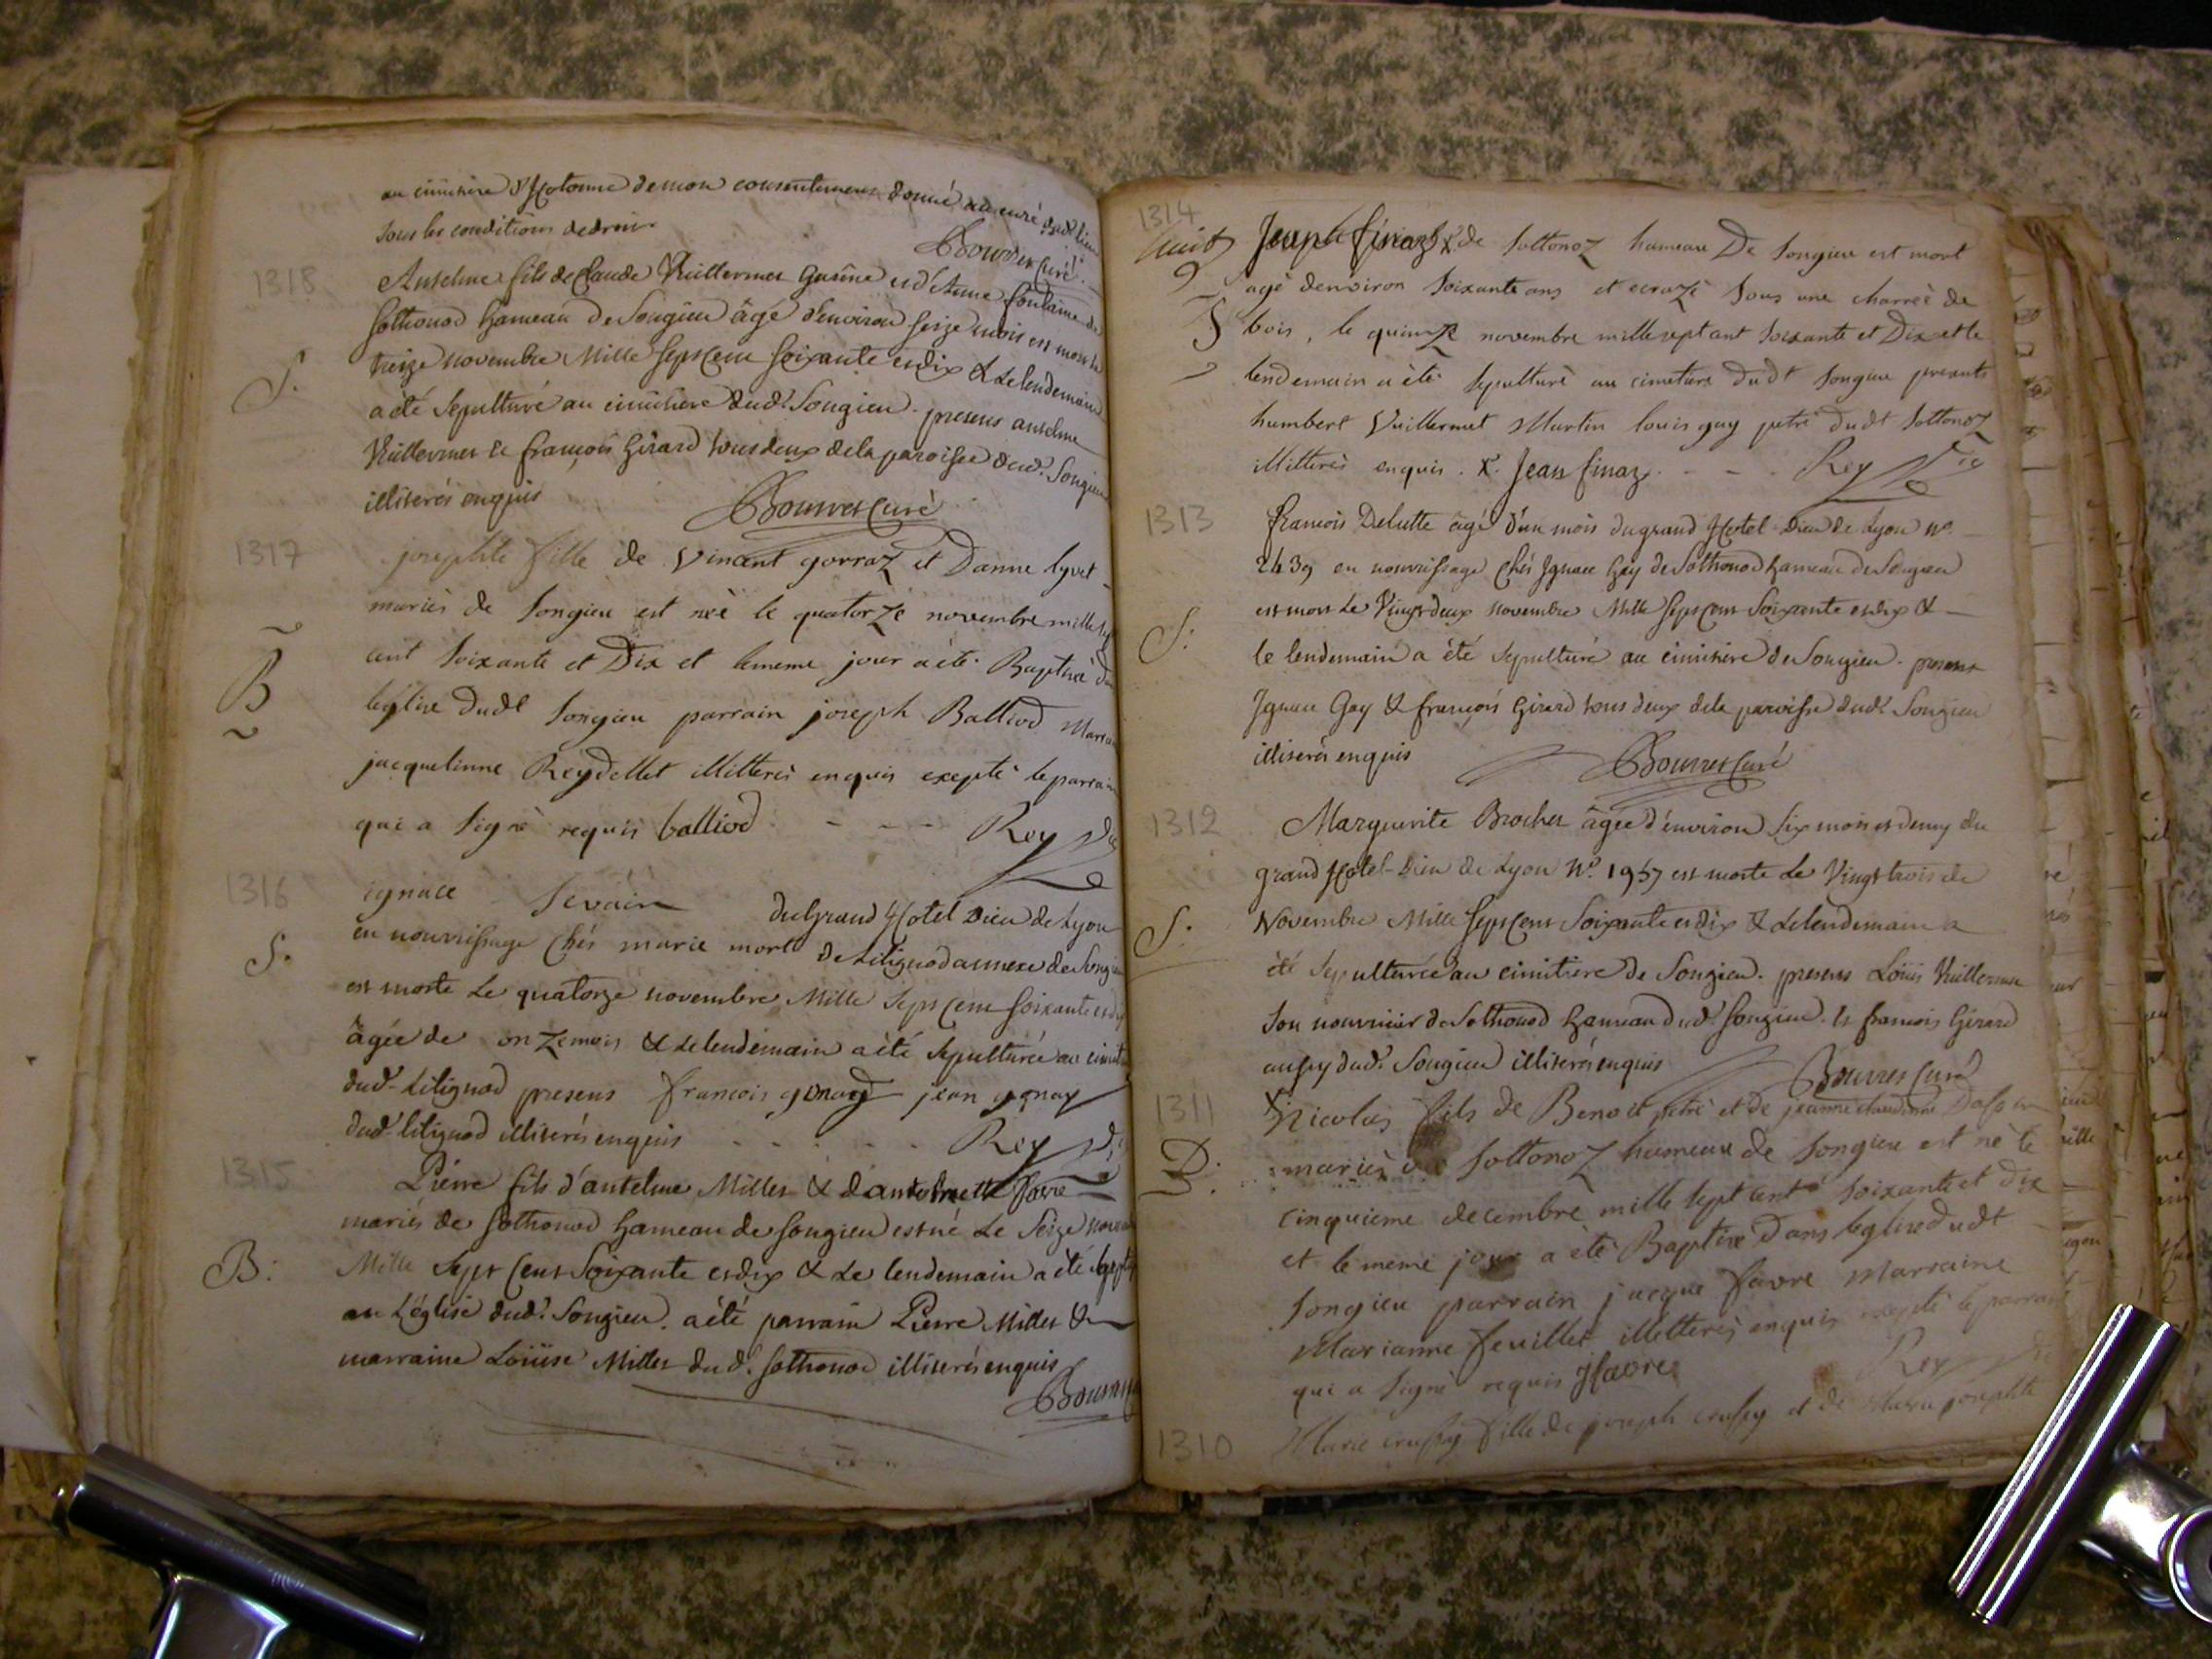 au cimitiére d'Hotonne de mon consentement donné au curé dud. lieu
sous les conditions de droit
Bouvier Curé
1318
Anthelme fils de Claude Vuillermet Gasine et d'Anne fontaine de
Sothonod hameau de Songieu âgé d'environ seize mois est mort le
treize novembre Mille Sept Cent soixante et dix & le lendemain
S.
a été sepulturé au cimitiere dud. Songieu. presens antelme
Vuillermet & françois Girard tous deux de la paroisse dud. Songieu
illiterés enquis
Bouvet Curé
1317
josephte fille de Vincent gorraz et Danne lyvet
mariés de Songieu est née le quatorze novembre mille sept
B
cent soixante et Dix et le meme jour a été Baptisé dans
léglise dudt Songieu parrain joseph Balliod Marraine
jacquelinne Reydellet illitterés enquis exepté le parrain
qui a signé requis balliod
Rey Vic
1316
ignace Sevain du Grand Hotel Dieu de Lyon
S.
en nourrissage Chés marie mort de Litignod annexe de Songieu
est morte Le quatorze novembre Mille Sept Cent soixante et dix
âgée de onze mois & le lendemain a été sepulturée au cimit
dud. Litignod presens francois gonod jean gonay
dud. litignod illiterés enquis
Rey Vic
1315
Pierre fils d'antelme Millet & d'antoinette favre
mariés de Sothonod hameau de Songieu est né Le Seize novembre
B:
Mille Sept Cent Soixante et dix & Le lendemain a été baptisé
en L'église dud. Songieu. a été parrain Pierre Millet &
marraine Loüise Millet dud. Sothonod illiterés enquis
Bouvet
1314
Jean finaz X de Sottonoz hameau De Songieu est mort
agé denviron soixante ans et ecrazé sous une charreé de
S
bois, le quinze novembre mille sept cant soixante et Dix et le
lendemain a été sepulturé au cimetiere dudt Songieu presents
humbert Vuillermet Martin louis guy petré dudt Sottonoz
illitterés enquis. X. Jean finaz.
Rey Vic
1313
francois Delutte âgé d'un mois du grand Hotel-Dieu de Lyon No.
2439 en nourrissage Chés Ignace Gay de Sothonod hameau de Songieu
est mort Le Vingt deux novembre Mille Sept Cent Soixante et dix &
S.
le lendemain a été sepulturé au cimitiére de Songieu. presens
Ignace Gay & françois Girard tous deux de la paroisse dud. Songieu
illiterés enquis
Bouvet Curé
1312
Marguerite Brochet âgée d'environ six mois et demy du
grand Hotel-Dieu de Lyon No. 1957 est morte Le Vingt trois de
S.
Novembre Mille Sept Cent Soixante et dix & Le lendemain a
été sepulturée au cimitiere de Songieu. presens Loüis Vuillermet
son nourricier de Sothonod hameau dud. Songieu. & francois Girard
aussy dud. Songieu illiterés enquis
Bouvet Curé
1311
Nicolas fils de Benoit petré et de jeanne claudinne
B.
mariés de Sottonoz hameau de Songieu est né le
cinquieme decembre mille sept cent soixante et dix
et le meme jour a été Baptisé Dans leglise dudt
Songieu parrain jacque favre Marraine
Marianne feuillet illetterés enquis exepté le parrain
qui a signé requis J favre
Rey Vic
1310
Marie crussy fille de joseph crussy et de Marie josephte